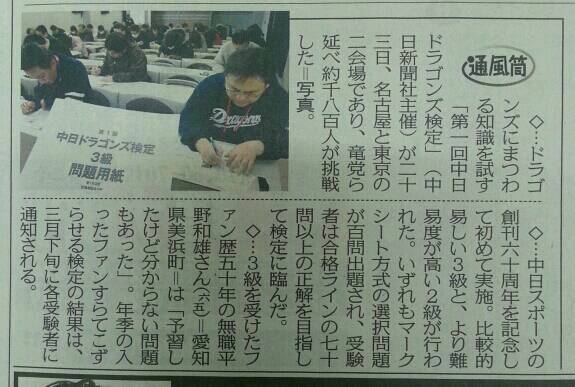 通風筒
◇…ドラゴ
ンズにまつわ
る知識を試す
「第一回中日
ドラゴンズ検定」（中
日新聞社主催）が二十
三日、名古屋と東京の
二会場であり、竜党ら
延べ約千八百人が挑戦
した＝写真。
◇…中日スポーツの
創刊六十周年を記念し
て初めて実施。比較的
易しい３級と、より難
易度が高い２級が行わ
れた。いずれもマーク
シート方式の選択問題
が百問出題され、受験
者は合格ラインの七十
問以上の正解を目指し
て検定に臨んだ。
◇…３級を受けたフ
ァン歴五十年の無職平
野和雄さん（六五）＝愛知
県美浜町＝は「予習し
たけど分からない問題
もあった」。年季の入
ったファンすらてこず
らせる検定の結果は、
三月下旬に各受験者に
通知される。
第1回
中日ドラゴンズ検定
3級
問題用紙
Dragons